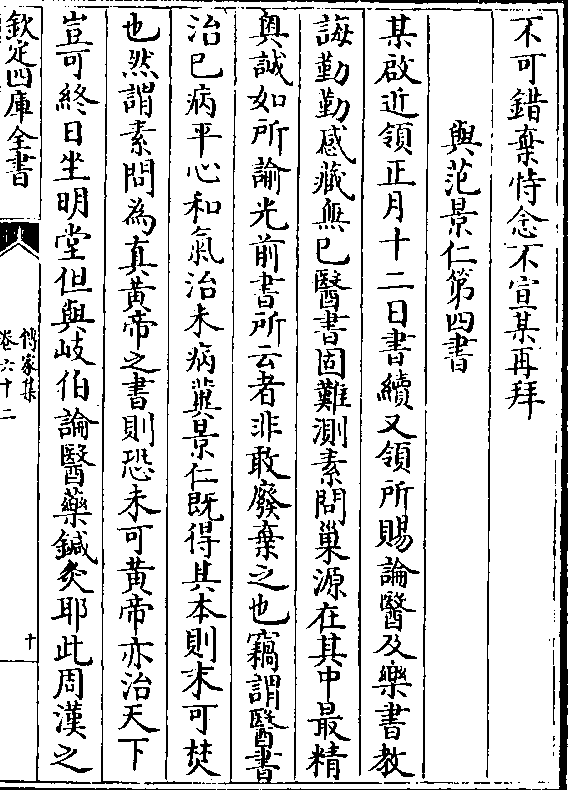 不可錯棄特念不宣某再拜
與范景仁第四書
某啟近領正月十二日書續又領所賜論醫及樂書教
誨勤勤感藏無已醫書固難測素問巢源在其中最精
奧誠如所諭光前書所云者非敢廢棄之也竊謂醫書
治已病平心和氣治未病冀景仁既得其本則末可焚
也然謂素問為真黃帝之書則恐未可黃帝亦治天下
豈可終日坐明堂但與岐伯論醫藥鍼灸耶此周漢之
欽定四庫全書
傳家集
卷六十二
十